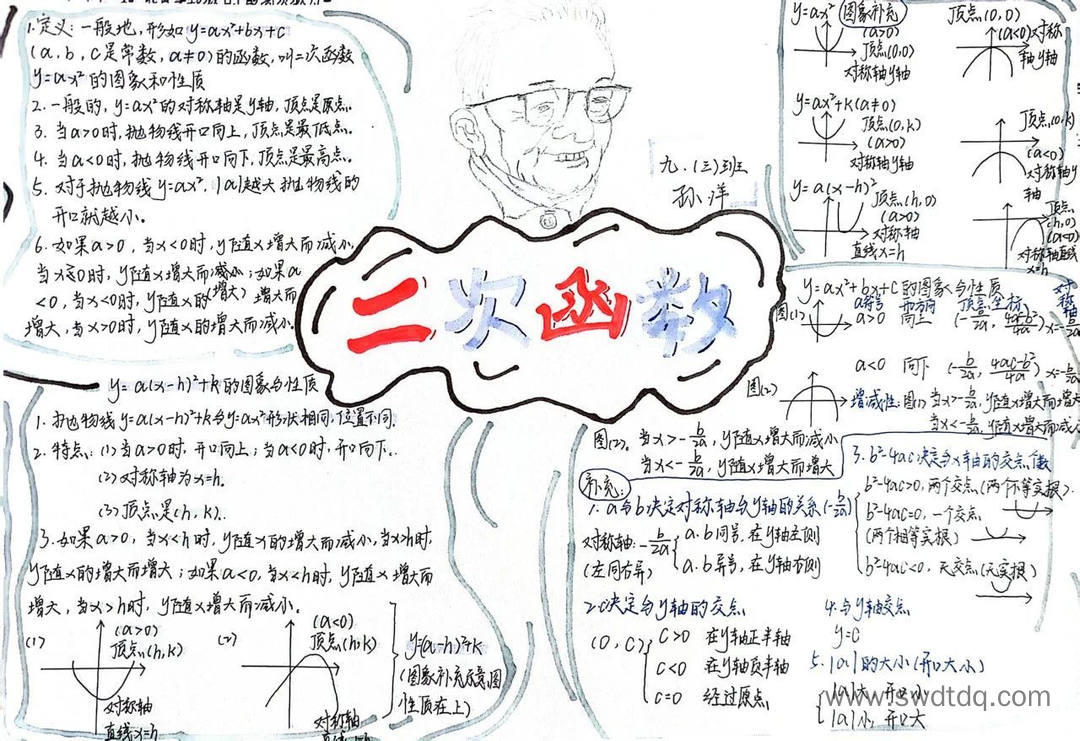 1.定义:一般地,形如y=ax²+bx+c
(a,b,c是常数,a≠0)的函数,叫二次函数
y=ax²的图象和性质
2.一般的,y=ax²的对称轴是y轴,顶点是原点。
3.当a>0时,抛物线开口向上,顶点是最低点。
4.当a<0时,抛物线开口向下,顶点是最高点。
5.对于抛物线y=ax²,|a|越大抛物线的
开口就越小。
6.如果a>0,当x<0时,y随x增大而减小,
当x>0时,y随x增大而;如果a
<0,当x<0时,y随x的(增大)增大而
增大,当x>0时,y随x增大而减小。
九.(三)班
孙洋
二次函数
y=ax² 图象补充
(a>0)
顶点(0,0)
对称轴y轴
顶点(0,0)
(a<0)对称
轴y轴
y=ax²+k(a≠0)
顶点(0,k)
(a>0)
对称轴y轴
顶点(0,k)
(a<0)
对称轴y
轴
y=a(x-h)²
顶点(h,0)
(a>0)
直线x=h
顶点
(h,0)
(a<0)
对称轴直线
x=h
y=a(x-h)²+k的图象与性质
1.抛物线y=a(x-h)²+k与y=ax²形状相同,位置不同.
2.特点:(1)当a>0时,开口向上;当a<0时,开口向下.
(2)对称轴为x=h.
(3)顶点是(h,k).
3.如果a>0,当x<h时,y随x的增大而减小,当x>h时,
y随x的增大而增大;如果a<0,当x<h时,y随x增大而
增大,当x>h时,y随x增大而减小。
(1)
(a>0)
顶点(h,k)
对称轴
直线x=h
(2)
(a<0)
顶点(h,k)
对称轴
y=(a-h)²+k
(图象补充
性质在上)
y=ax²+bx+c的图象与性质
图(1) a符号 开方向 顶点坐标 对称轴
a>0 向上 (-b/2a, 4ac-b²/4a) x=-b/2a
a<0 向下 (-b/2a, 4ac-b²/4a) x=-b/2a
图(2)
增减性:图(1)当x>-b/2a,y随x增大而增大
当x<-b/2a,y随x增大而减小
图(2),当x>-b/2a,y随x增大而减小
当x<-b/2a,y随x增大而增大
补充:
1.a与b决定对称轴与y轴的关系(-b/2a)
对称轴:-b/2a a.b同号,在y轴左侧
(左同右异) a.b异号,在y轴右侧
2.c决定与y轴的交点
(0,c) c>0 在y轴正半轴
c<0 在y轴负半轴
c=0 经过原点
3.b²-4ac决定与x轴的交点个数
b²-4ac>0,两个交点(两个不等实根).
b²-4ac=0,一个交点
(两个相等实根)
b²-4ac<0,无交点(无实根)
4.与y轴交点
y=c
5.|a|的大小(开口大小)
|a|大 开口小
|a|小 开口大
www.swdtdq.com